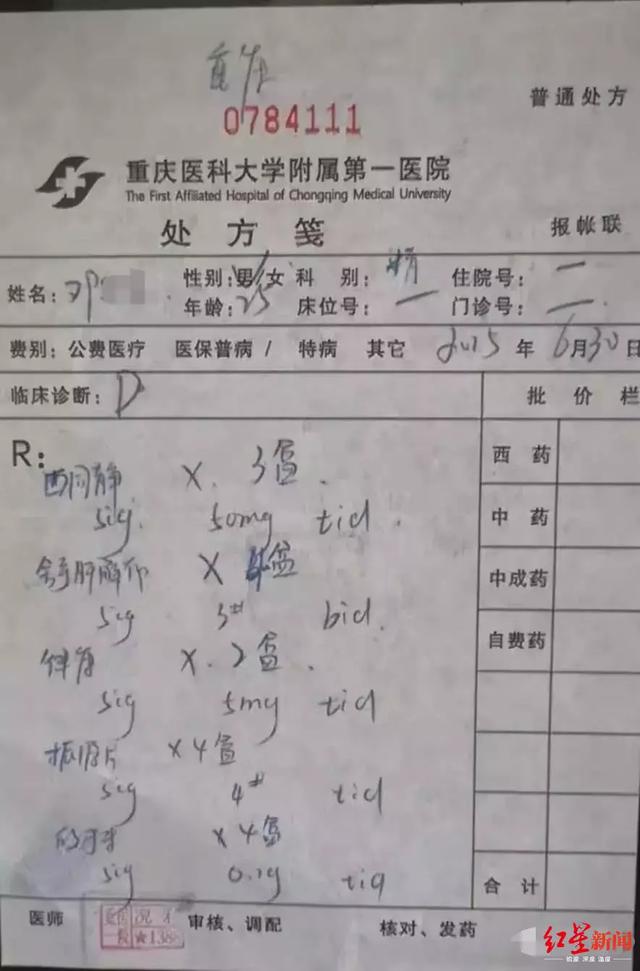 0784111
普通处方
重庆医科大学附属第一医院
The First Affiliated Hospital of Chongqing Medical University
处方笺
报帐联
姓名: 邓
性别: 男/女 科别: 住院号: 一
年龄: 25 床位号: 一 门诊号: 一
费别: 公费医疗 医保普病 / 特病 其它 2015 年 6月30日
临床诊断: D
批价栏
R:
西同静 X. 3盒
西药
sig. 50mg tid.
中药
舒肝解郁 X 4盒
中成药
sig 3# bid.
自费药
X. 2盒.
sig 5mg tid
振源片 X4盒
sig 4# tid
X4盒
sig 0.2g tid
合计
医师 审核、调配 核对、发药
红星新闻